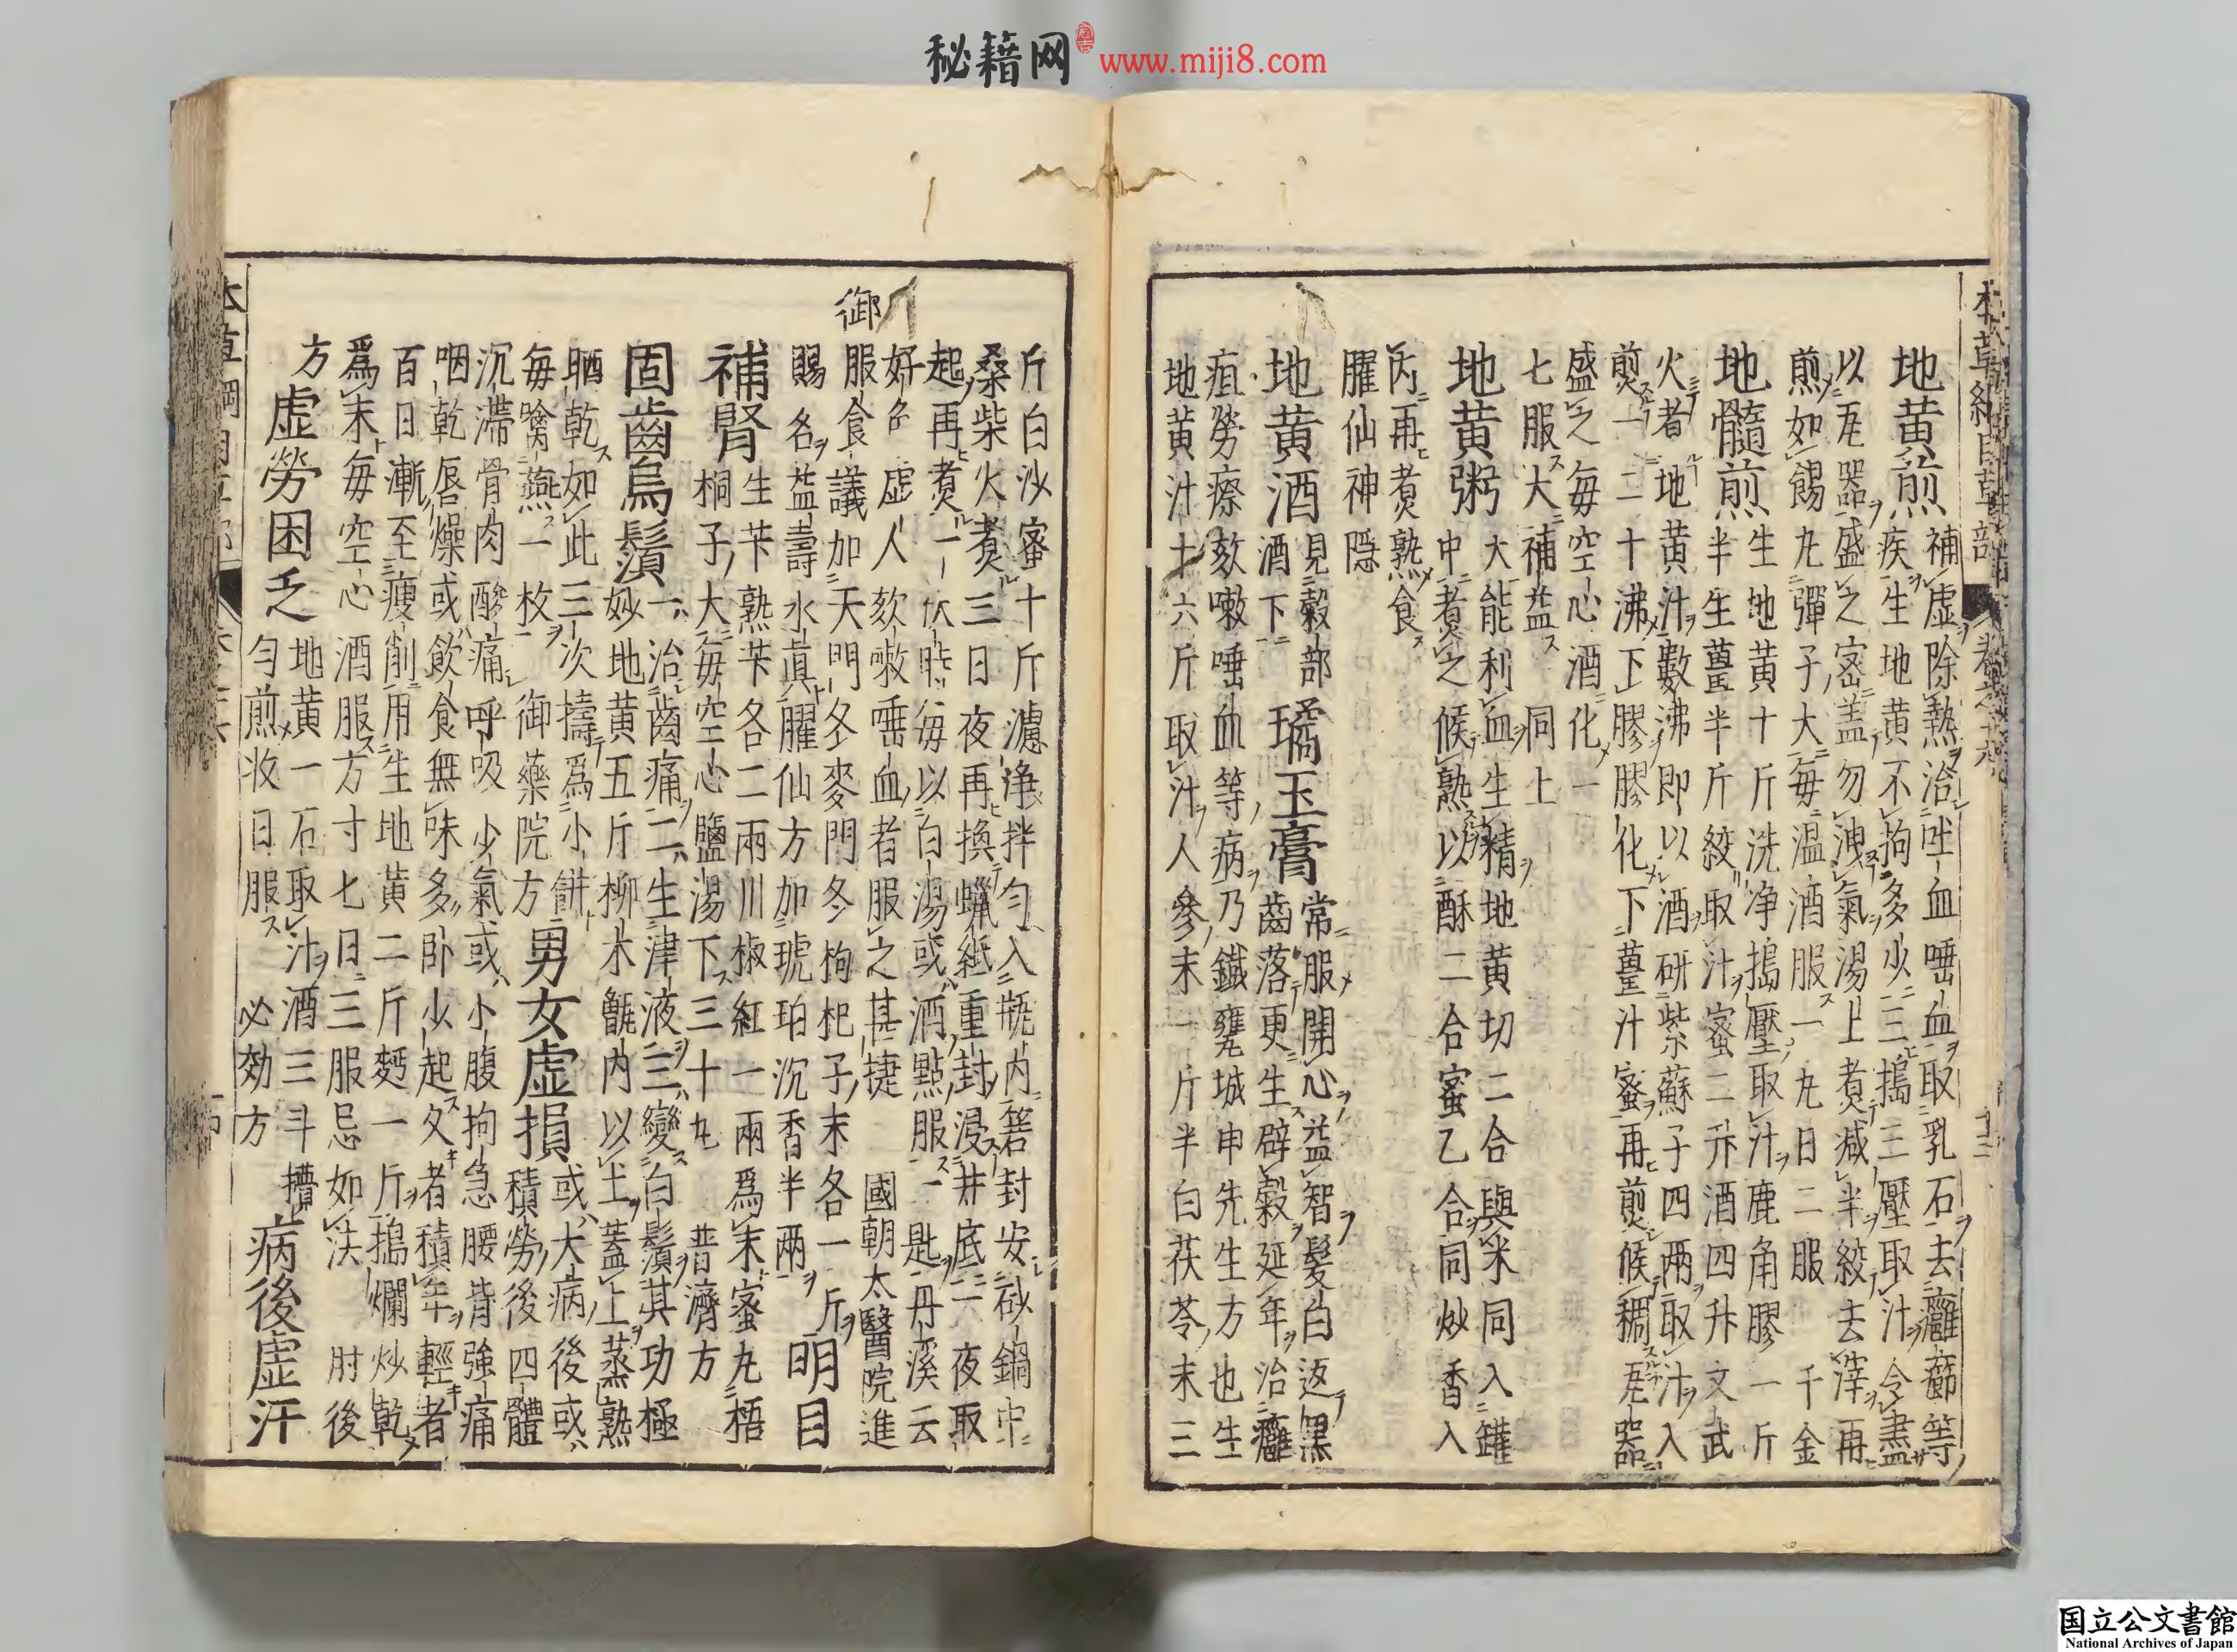 秘籍网 www.miji8.com
本草綱目草部 卷之十六 十三
地黄煎 補虛除熱治吐血唾血取乳石去癰癤等
疾生地黄不拘多少三搗三壓取汁令盡
以瓦器盛之密盖勿洩氣湯上煮減半絞去滓再
煎如餳丸彈子大毎温酒服一丸日二服 千金
地髓煎 生地黄十斤洗净搗壓取汁鹿角膠一斤
半生薑半斤絞取汁蜜二升酒四升文武
火煮地黄汁數沸即以酒研紫蘇子四兩取汁入
煎一二十沸下膠膠化下薑汁蜜再煎候稠瓦器
盛之毎空心酒化一
七服大補益 同上
地黄粥 大能利血生精地黄切二合與米同入罐
中煮之候熟以酥二合蜜乙合同炒香入
内再煮熟食
臞仙神隠
地黄酒 見穀部
酒下
璚玉膏 常服開心益智髪白返黑
齒落更生辟穀延年治癰
疽勞瘵欬嗽唾血等病乃鐵甕城申先生方也生
地黄汁十六斤取汁人參末一斤半白茯苓末三
斤白沙蜜十斤濾净拌勻入瓶内箬封安砂鍋中
桑柴火煮三日夜再換蠟紙重封浸井底一夜取
起再煮一伏時毎以白湯或酒點服一匙丹溪云
好色虛人欬嗽唾血者服之甚捷 國朝太醫院進
御服食議加天門冬麥門冬枸杞子末各一斤
賜名益壽永眞臞仙方加琥珀沉香半兩
明目
補腎 生苄熟苄各二兩川椒紅一兩爲末蜜丸梧
桐子大毎空心鹽湯下三十丸 普濟方
固齒烏鬚 一治齒痛二生津液三變白鬚其功極
妙地黄五斤柳木甑内以土蓋上蒸熟
晒乾如此三次擣爲小餅
毎噙燕一枚 御藥院方
男女虛損 或大病後或
積勞後四體
沉滯骨肉酸痛呼吸少氣或小腹拘急腰背強痛
咽乾唇燥或飲食無味多卧少起久者積年輕者
百日漸至瘦削用生地黄二斤麪一斤搗爛炒乾
爲末毎空心酒服方寸七日三服忌如法 肘後
方
虛勞困乏 地黄一石取汁酒三斗攪
勻煎收日服 必効方
病後虛汗
国立公文書館
National Archives of Japan